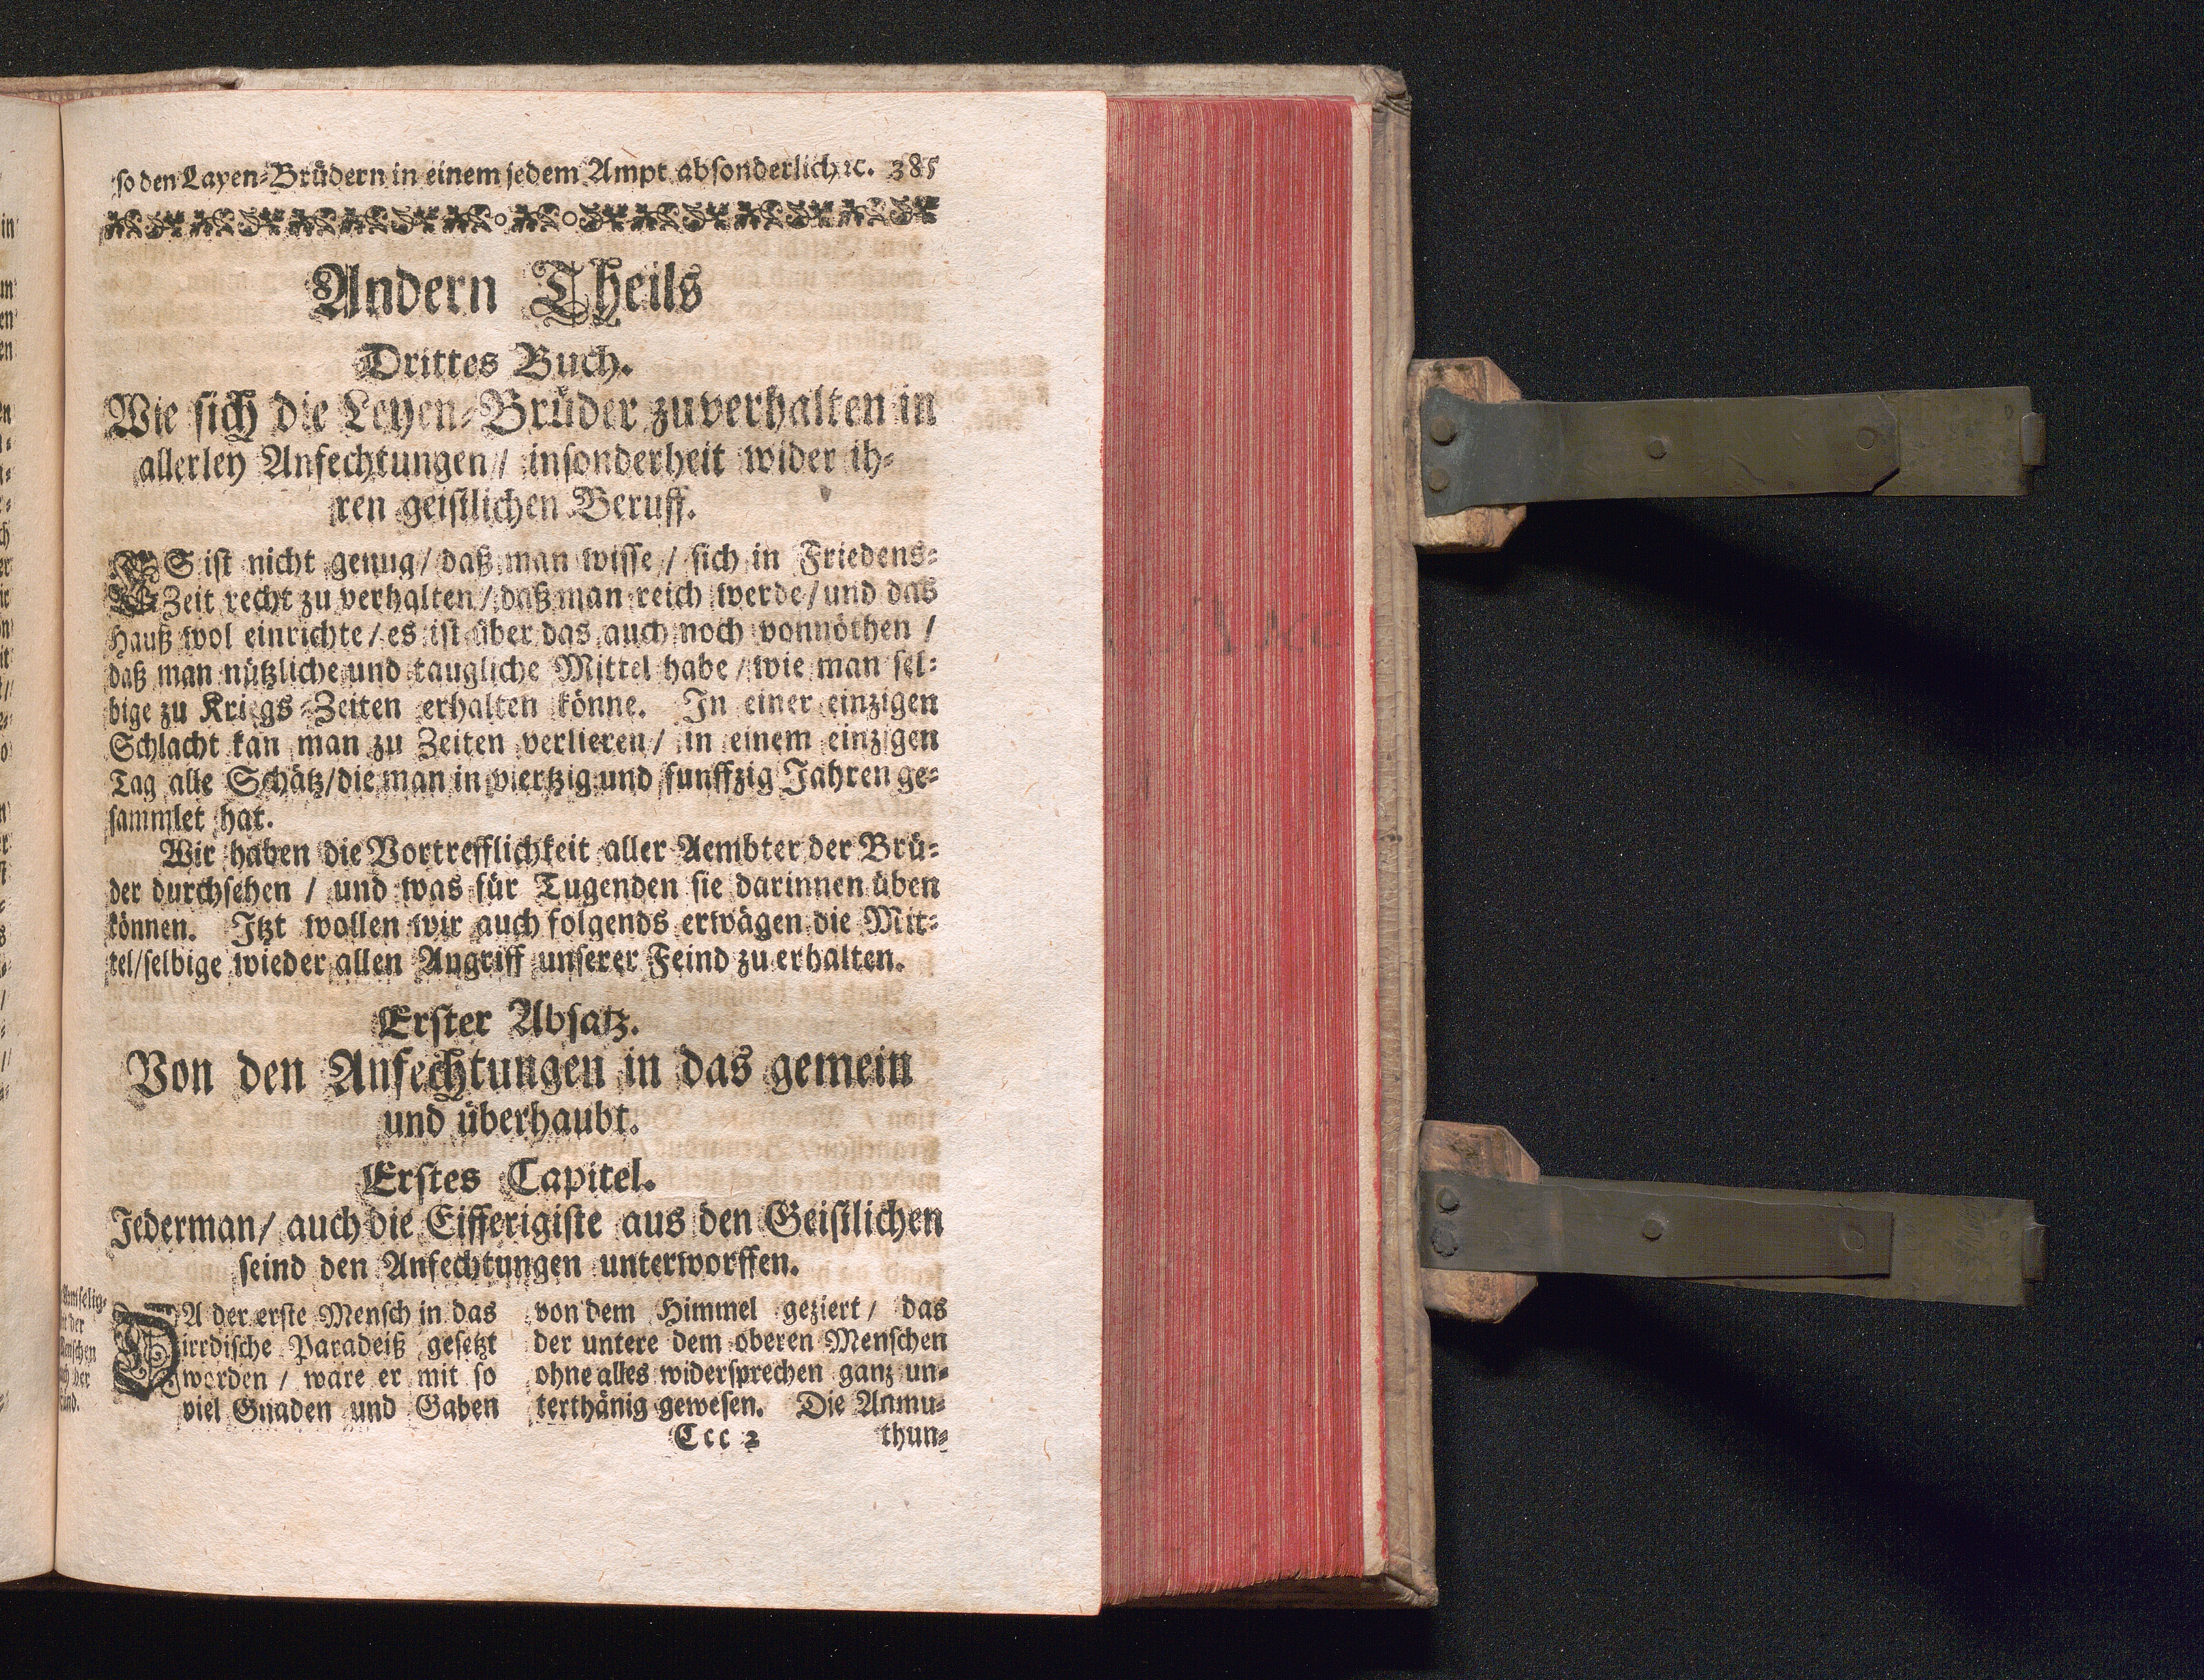 so den Layen-Brüdern in einem jedem Ampt absonderlich ꝛc. 385
Andern Theils
Drittes Buch.
Wie sich die Leyen-Brüder zuverhalten in
allerley Anfechtungen/ insonderheit wider ih-
ren geistlichen Beruff.
ES ist nicht genug/ daß man wisse/ sich in Friedens-
Zeit recht zu verhalten/ daß man reich werde/ und das
Hauß wol einrichte/ es ist über das auch noch vonnöthen /
daß man nützliche und taugliche Mittel habe/ wie man sel-
bige zu Kriegs-Zeiten erhalten könne. In einer einzigen
Schlacht kan man zu Zeiten verlieren/ in einem einzigen
Tag alle Schätz/ die man in viertzig und funffzig Jahren ge-
sammlet hat.
Wir haben die Vortrefflichkeit aller Aembter der Brü-
der durchsehen / und was für Tugenden sie darinnen üben
können. Itzt wollen wir auch folgends erwägen die Mit-
tel/ selbige wieder allen Angriff unserer Feind zu erhalten.
Erster Absatz.
Von den Anfechtungen in das gemein
und überhaubt.
Erstes Capitel.
Jederman/ auch die Eifferigiste aus den Geistlichen
seind den Anfechtungen unterworffen.
der
Menschen
der
DA der erste Mensch in das
irrdische Paradeiß gesetzt
worden / ware er mit so
viel Gnaden und Gaben
von dem Himmel geziert/ das
der untere dem oberen Menschen
ohne alles widersprechen ganz un-
terthänig gewesen. Die Anmu-
Ccc 2 thun-